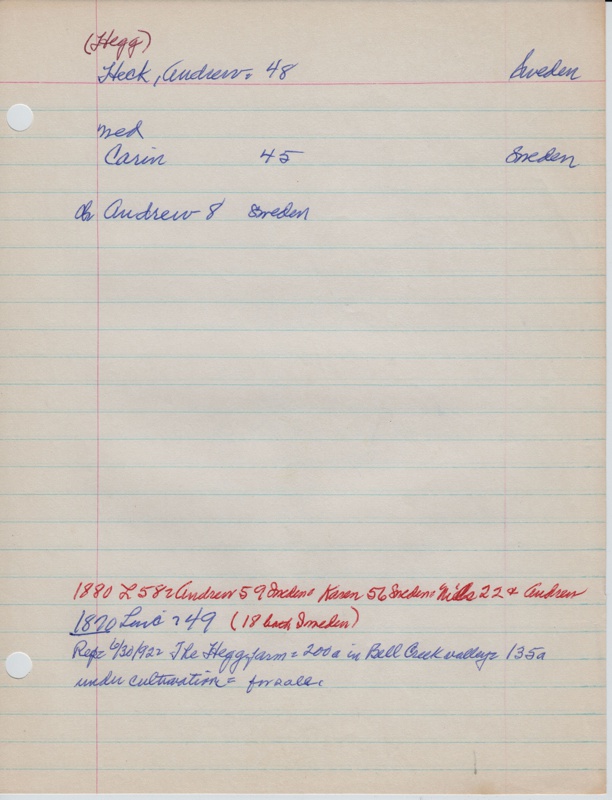 (Hegg)
Heck, Andrew = 48 Sweden
med
Carin 45 Sweden
ch Andrew 8 Sweden
1880 L 58 = Andrew 59 Sweden = Karen 56 Sweden = Nills 22 & Andrew
1870 Line = 49 (18 both Sweden)
Rep = 6/30/92 = The Hegg farm = 200a in Bell Creek valley = 135a
under cultivation = for sale =